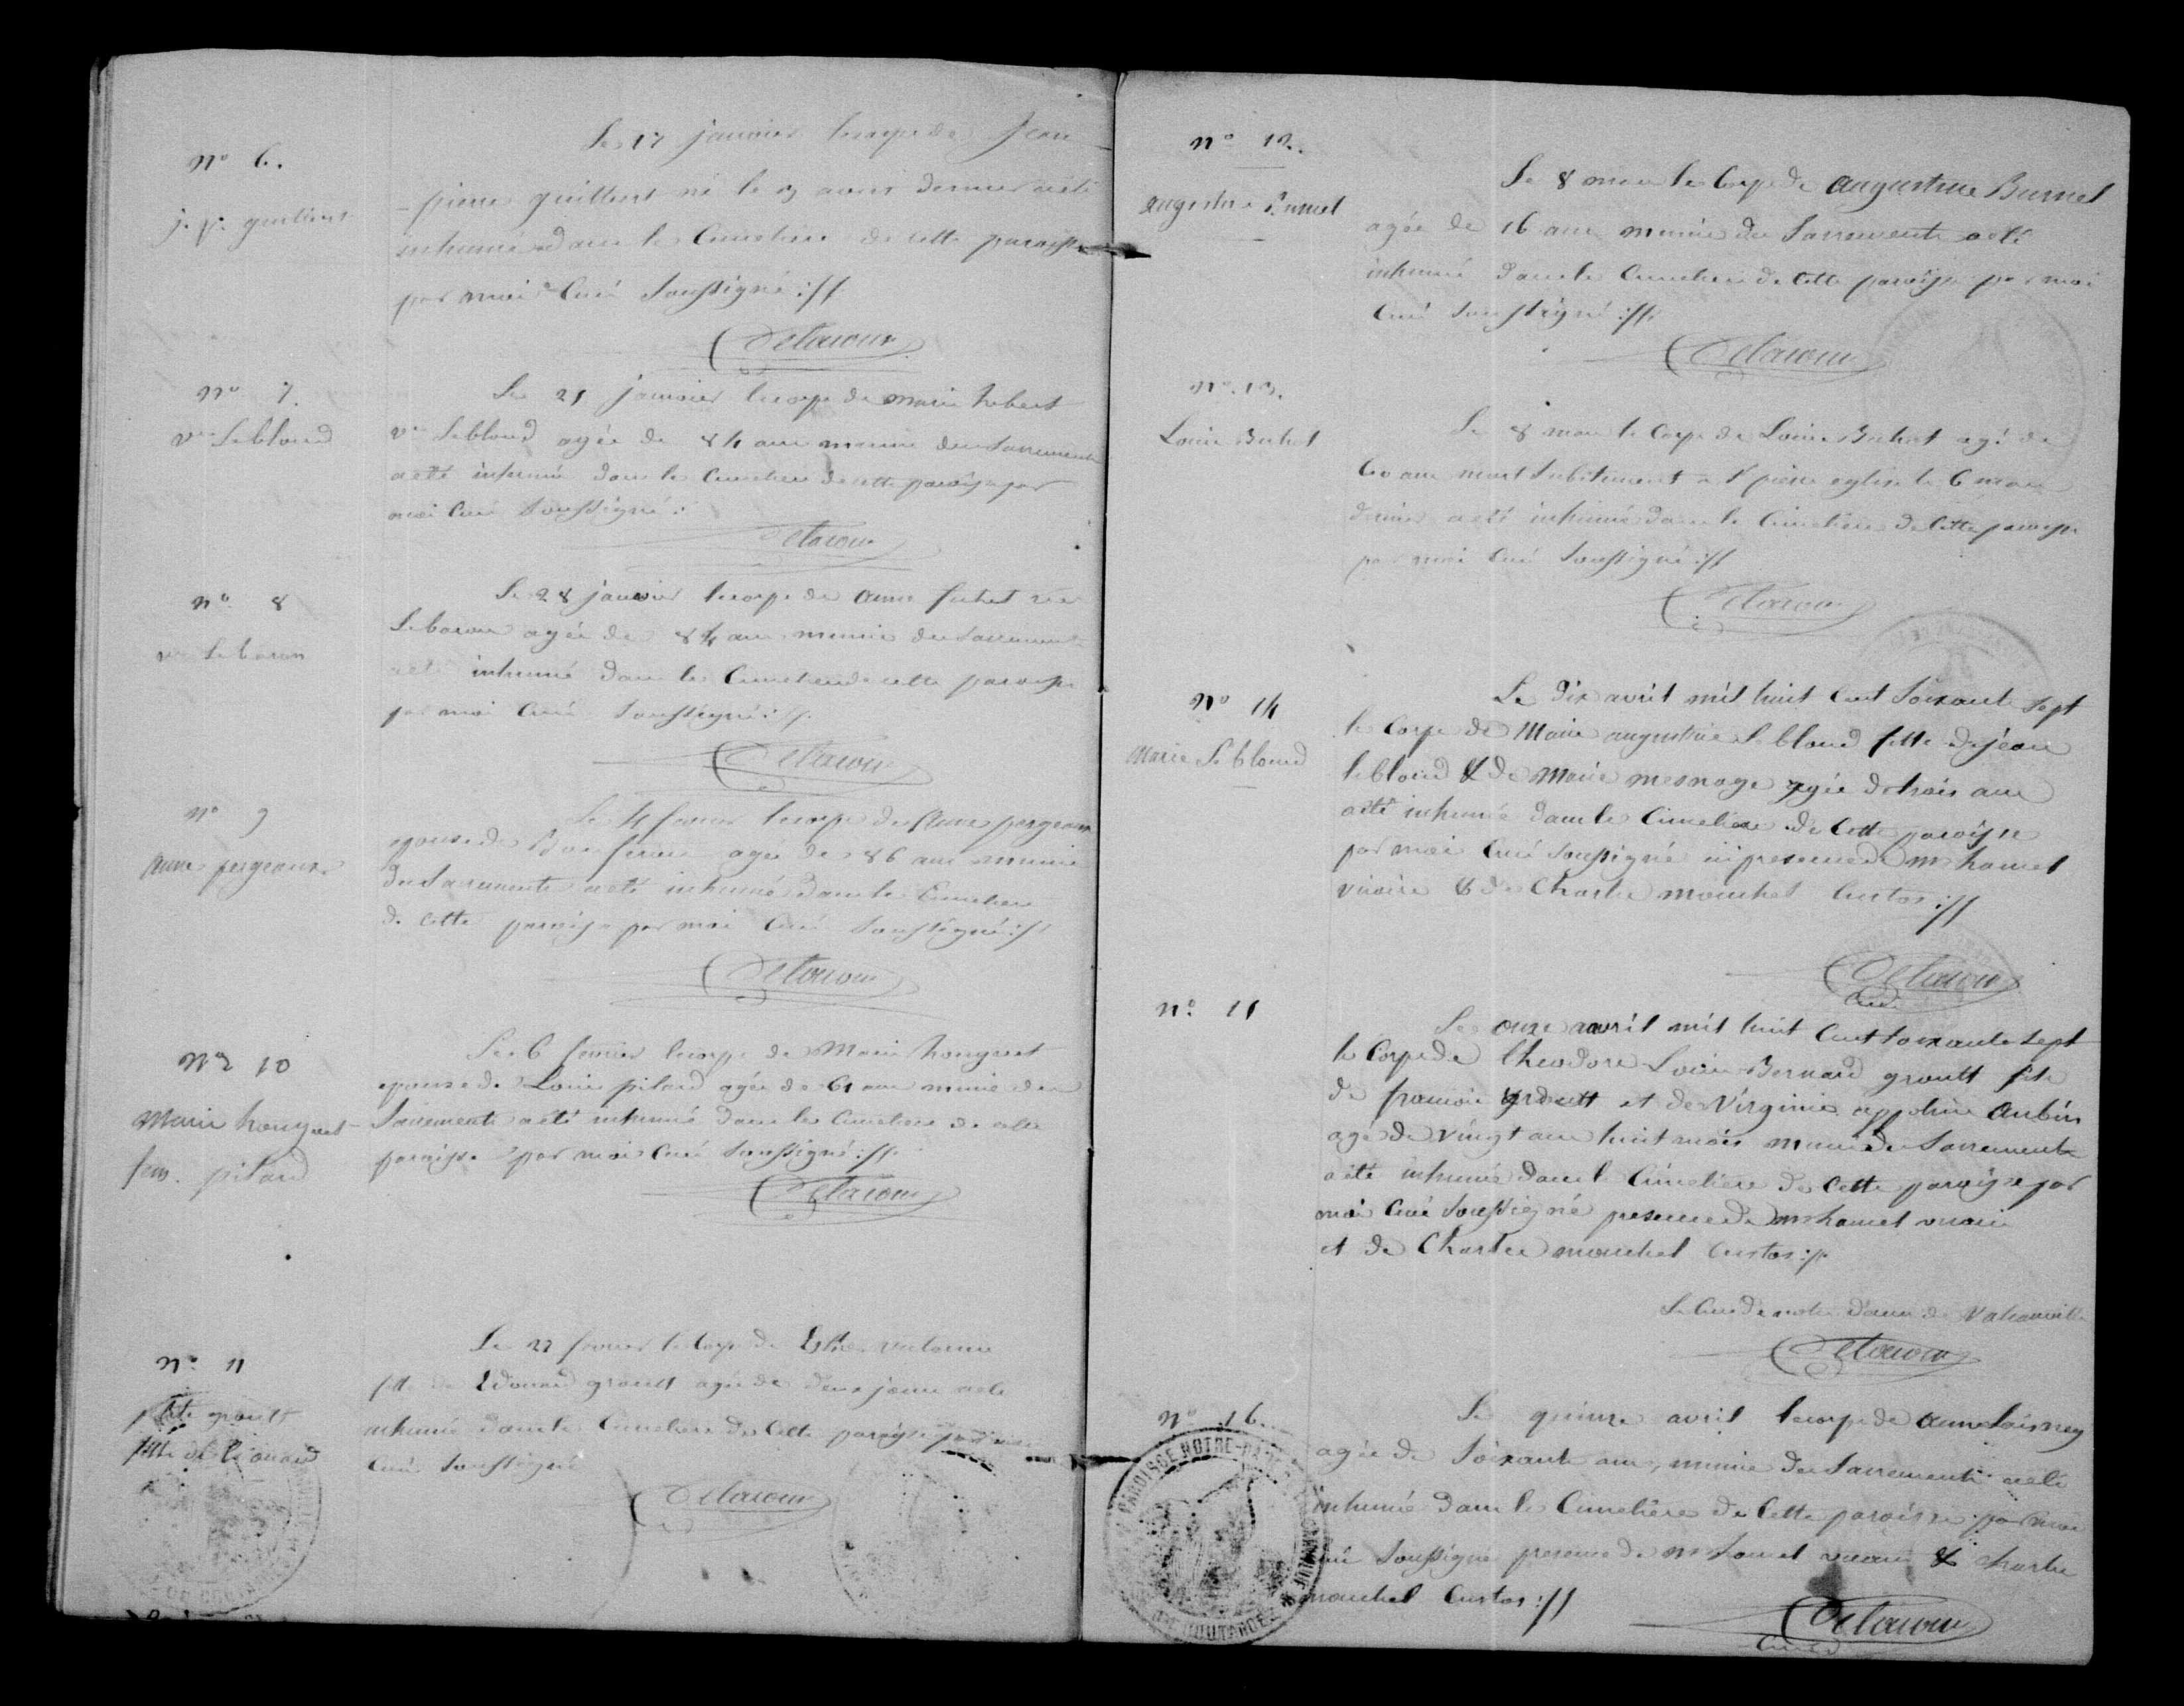 n° 6.
j. p. quillent
Le 17 janvier le corps de Jean
pierre quillent né le 3 aout dernier a été
inhumé dans le Cimetiere de cette paroisse
par moi Curé Soussigné ://
Delacour
n° 7.
v^e Leblond
Le 21 janvier le corps de marie hebert
v^e Leblond agée de 84 ans munie des Sacrements
a été inhumé dans le Cimetiere de cette paroisse par
moi Curé Soussigné :
Delacour
n° 8
v^e Lebaron
Le 28 janvier le corps de anne
Lebaron agée de 84 ans munie des Sacrements
a été inhumé dans le Cimetiere de cette paroisse
par moi Curé Soussigné ://
Delacour
n° 9
anne pergeaux
Le 4 fevrier le corps de Anne pergeaux
epouse de agée de 86 ans munie
des Sacrements a été inhumé dans le Cimetiere
de cette paroisse par moi Curé Soussigné ://
Delacour
N° 10
Marie houyvet
fem. pitard
Le 6 fevrier le corps de Marie houyvet
epouse de Louis pitard agée de 61 ans munie des
Sacrements a été inhumé dans le Cimetiere de cette
paroisse par moi Curé Soussigné ://
Delacour
n° 11
ptite groult
fille de Edouard
Le 22 fevrier le corps de
fille de Edouard groult agée de deux jours a été
inhumé dans le Cimetiere de Cette paroisse par moi
Curé Soussigné
Delacour
n° 12.
augustine Burnel
Le 8 mars le Corps de augustine Burnel
agée de 16 ans munie des Sacrements a été
inhumé dans le Cimetiere de Cette paroisse par moi
Curé Soussigné ://
Delacour
n° 13.
Louis Buhot
Le 8 mars le Corps de Louis Buhot agé de
60 ans mort Subitement a S^t pierre eglise le 6 mars
dernier a été inhumé dans le Cimetiere de Cette paroisse
par moi Curé Soussigné ://
Delacour
n° 14
Marie Leblond
Le Dix avril mil huit Cent Soixante Sept
le Corps de Marie augustine Leblond fille de jean
leblond & de Marie mesnage agée de trois ans
a été inhumé dans le Cimetiere de Cette paroisse
par moi Curé Soussigné en presence de mr hamel
vicaire & de Charles mouchel Custos ://
Delacour
Curé
n° 15
Le onze avril mil huit Cent Soixante Sept
le Corps de theodore Louis Bernard groult fils
de francois groult et de Virginie appoline Aubin
agé de vingt ans huit mois muni des Sacrements
a été inhumé dans le Cimetiere de Cette paroisse par
moi Curé Soussigné presence de mr hamel vicaire
et de Charles mouchel Custos ://
Le Curé de notre dame de Valcanville
Delacour
n° 16.
Le quinze avril le corps de anne Loisney
agée de Soixante ans, munie des Sacrements a été
inhumé dans le Cimetière de Cette paroisse par moi
curé Soussigné presence de mr hamel vicaire & charles
mouchel Custos ://
Delacour
Curé
PAROISSE NOTRE-DAME
DE COUTANCES